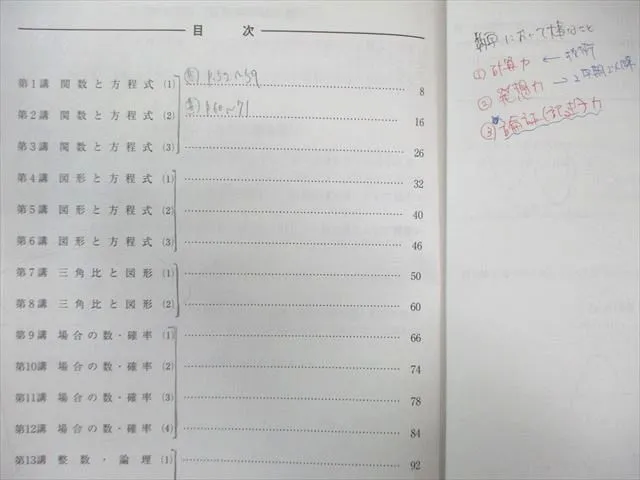 目 次
第1講 関数と方程式 (1) P.52~59 8
第2講 関数と方程式 (2) P.60~71 16
第3講 関数と方程式 (3) 26
第4講 図形と方程式 (1) 32
第5講 図形と方程式 (2) 40
第6講 図形と方程式 (3) 46
第7講 三角比と図形 (1) 50
第8講 三角比と図形 (2) 60
第9講 場合の数・確率 (1) 66
第10講 場合の数・確率 (2) 74
第11講 場合の数・確率 (3) 78
第12講 場合の数・確率 (4) 84
第13講 整数・論理 (1) 92
において大事なこと
① 計算力 ←
② 発想力 → 2学期以降
③ 論証(記述)力